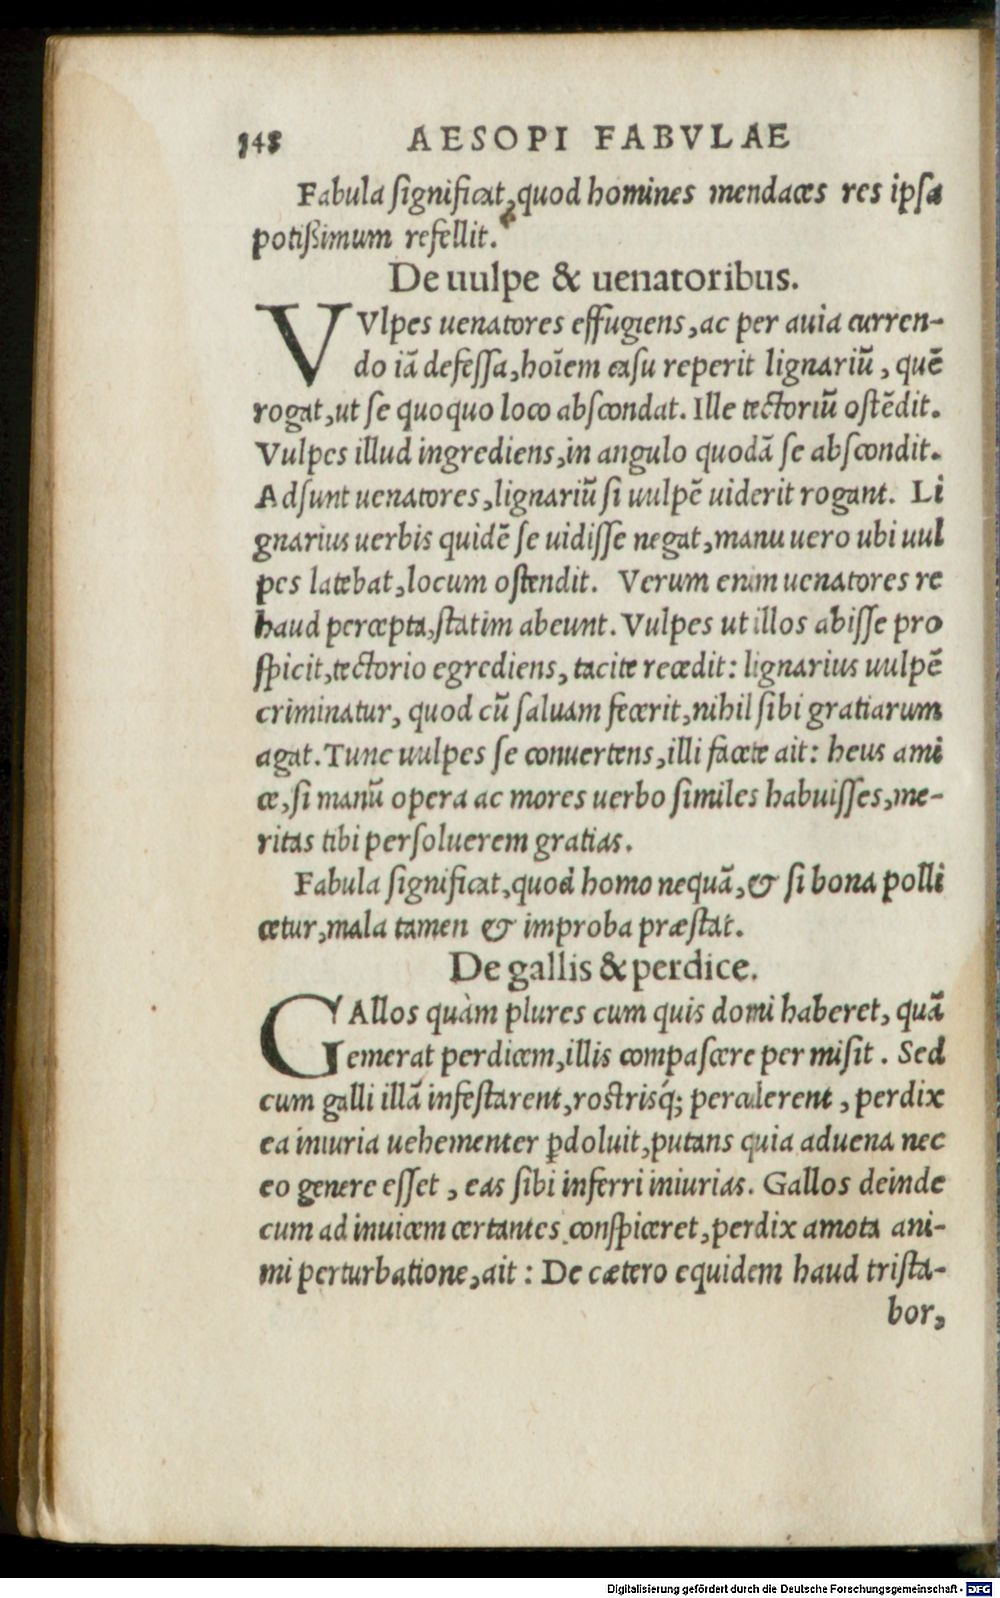 148 AESOPI FABVLAE
Fabula ſignificat, quod homines mendaces res ipſa
potiſsimum refellit.
De uulpe & uenatoribus.
VVlpes uenatores effugiens, ac per auia curren-
do iã defeſſa, hoĩem caſu reperit lignariũ, quẽ
rogat, ut ſe quoquo loco abſcondat. Ille tectoriũ oſtẽdit.
Vulpes illud ingrediens, in angulo quodã ſe abſcondit.
Adſunt uenatores, lignariũ ſi uulpẽ uiderit rogant. Li
gnarius uerbis quidẽ ſe uidiſſe negat, manu uero ubi uul
pes latebat, locum oſtendit. Verum enim uenatores re
haud percepta, ſtatim abeunt. Vulpes ut illos abiſſe pro
ſpicit, tectorio egrediens, tacite recedit: lignarius uulpẽ
criminatur, quod cũ ſaluam fecerit, nihil ſibi gratiarum
agat. Tunc uulpes ſe conuertens, illi facete ait: heus ami
ce, ſi manũ opera ac mores uerbo ſimiles habuiſſes, me-
ritas tibi perſoluerem gratias.
Fabula ſignificat, quod homo nequã, & ſi bona polli
cetur, mala tamen & improba præſtat.
De gallis & perdice.
GAllos quàm plures cum quis domi haberet, quã
emerat perdicem, illis compaſcere permiſit. Sed
cum galli illã infeſtarent, roſtrisq́; percuterent, perdix
ea iniuria uehementer ꝑdoluit, putans quia aduena nec
eo genere eſſet, eas ſibi inferri iniurias. Gallos deinde
cum ad inuicem certantes conſpiceret, perdix amota ani-
mi perturbatione, ait: De cætero equidem haud triſta-
bor,
Digitalisierung gefördert durch die Deutsche Forschungsgemeinschaft - DFG